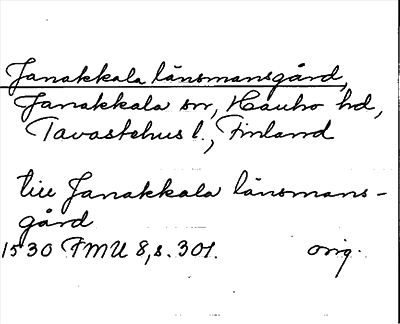 Janakkala länsmansgård,
Janakkala sn, Hauho hd,
Tavastehus l., Finland
till Janakkala länsmans-
gård
1530 FMU 8, s. 301. orig.